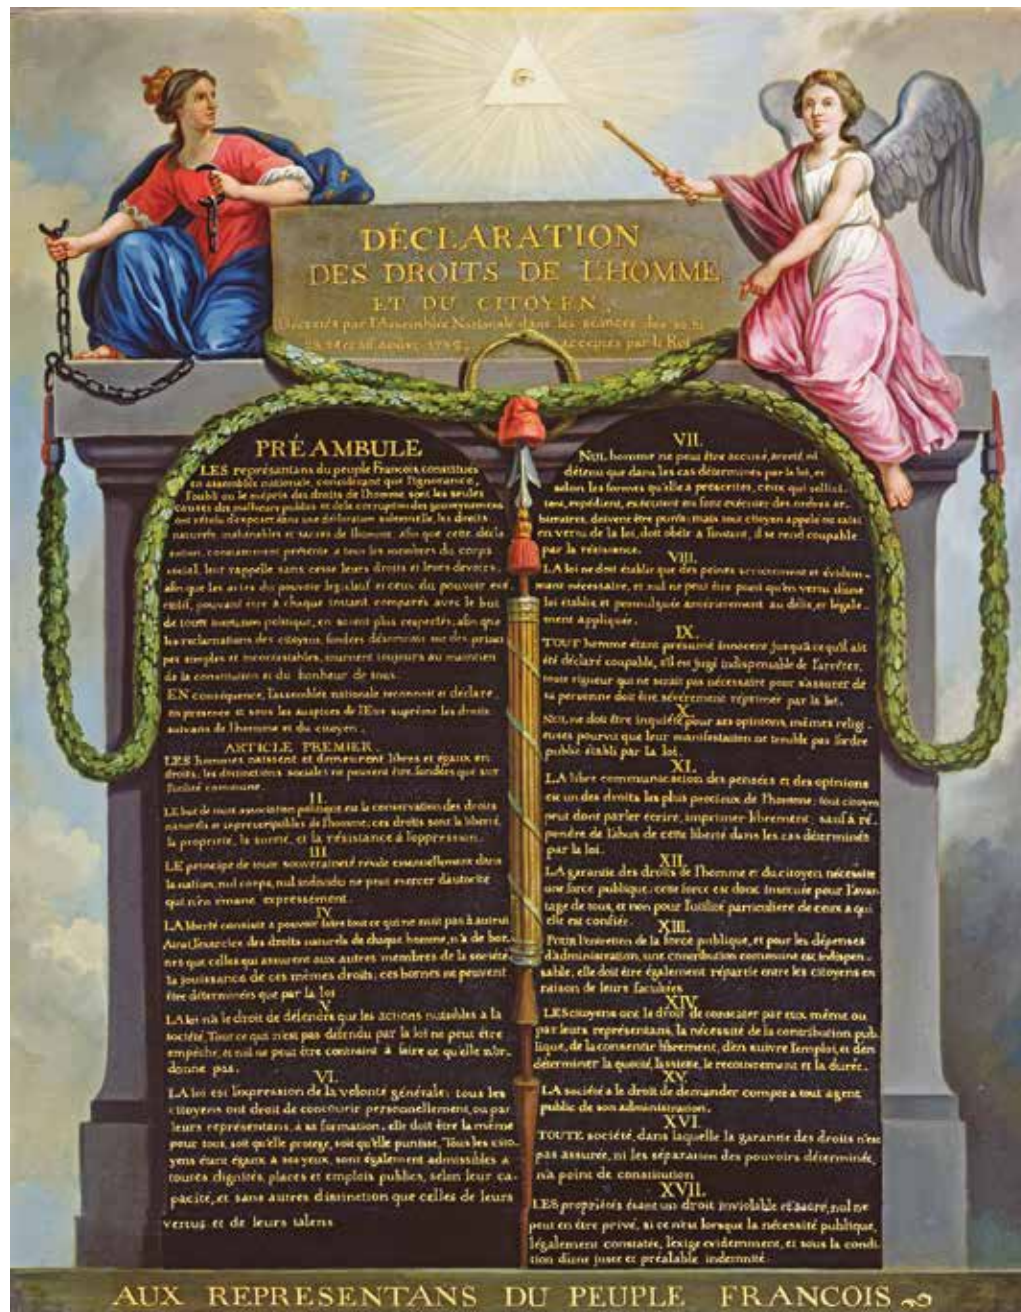 DÉCLARATION
DES DROITS DE L'HOMME
ET DU CITOYEN,
Décretés par l'Assemblée Nationale dans les séances des 20 21
acceptés par le Roi
PRÉAMBULE
LES représentans du peuple François, constitués
en assemblée nationale, considérant que l'ignorance,
l'oubli ou le mépris des droits de l'homme sont les seules
causes des malheurs publics et de la corruption des gouvernemens
ont résolu d'exposer dans une déclaration solemnelle, les droits
naturels, inaliénables et sacrés de l'homme, afin que cette décla
ration, constamment présente a tous les membres du corps
social, leur rappelle sans cesse leurs droits et leurs devoirs,
afin que les actes du pouvoir legislatif et ceux du pouvoir exé
cutif, pouvant être à chaque instant comparés avec le but
de toute institution politique, en soient plus respectés, afin que
les reclamations des citoyens, fondées désormais sur des princi
pes simples et incontestables, tournent toujours au maintien
de la constitution et du bonheur de tous.
EN conséquence, l'assemblée nationale reconnoit et déclare,
en presence et sous les auspices de l'Etre suprême les droits
suivans de l'homme et du citoyen.
ARTICLE PREMIER.
LES hommes naissent et demeurent libres et égaux en
droits, les distinctions sociales ne peuvent être fondées que sur
l'utilité commune.
II.
LE but de toute association politique est la conservation des droits
naturels et imprescriptibles de l'homme; ces droits sont la liberté,
la propriété, la sureté, et la résistance à l'oppression.
III.
LE principe de toute souveraineté reside essentiellement dans
la nation, nul corps, nul individu ne peut exercer d'autorité
qui n'en émane expressément.
IV.
LA liberté consiste a pouvoir faire tout ce qui ne nuit pas à autrui
Ainsi, l'exercice des droits naturels de chaque homme, n'a de bor-
nes que celles qui assurent aux autres membres de la société
la jouissance de ces mêmes droits; ces bornes ne peuvent
être déterminées que par la loi
V.
LA loi n'a le droit de défendre que les actions nuisibles à la
société. Tout ce qui n'est pas défendu par la loi ne peut être
empêché, et nul ne peut être contraint à faire ce qu'elle n'or-
donne pas.
VI.
LA loi est l'expression de la volonté générale; tous les
citoyens ont droit de concourir personnellement, ou par
leurs représentans, à sa formation; elle doit être la même
pour tous, soit qu'elle protege, soit qu'elle punisse, Tous les cito-
yens étant égaux à ses yeux, sont également admissibles à
toutes dignités, places et emplois publics, selon leur ca-
pacité, et sans autres distinction que celles de leurs
vertus et de leurs talens.
VII.
NUL homme ne peut être accusé, arreté, ni
détenu que dans les cas déterminés par la loi, et
selon les formes qu'elle a prescrites, ceux qui sollici-
tent, expédient, exécutent ou font exécuter des ordres ar-
bitraires, doivent être punis; mais tout citoyen appelé ou saisi
en vertu de la loi, doit obéir a l'instant, il se rend coupable
par la résistance.
VIII.
LA loi ne doit établir que des peines strictement et évidem-
ment nécessaire, et nul ne peut être puni qu'en vertu d'une
loi établie et promulguée antérieurement au délit, et légale-
ment appliquée.
IX.
TOUT homme étant présumé innocent jusqu'a ce qu'il ait
été déclaré coupable, s'il est jugé indispensable de l'arrêter,
toute rigueur qui ne serait pas nécessaire pour s'assurer de
sa personne doit être sévèrement réprimée par la loi.
X.
NUL ne doit être inquiété pour ses opinions, mêmes relig-
ieuses pourvu que leur manifestation ne trouble pas l'ordre
public établi par la loi.
XI.
LA libre communication des pensées et des opinions
est un des droits les plus precieux de l'homme; tout citoyen
peut dont parler écrire, imprimer librement; sauf à ré-
pondre de l'abus de cette liberté dans les cas déterminés
par la loi.
XII.
LA garantie des droits de l'homme et du citoyen nécessite
une force publique; cette force est donc instituée pour l'avan-
tage de tous, et non pour l'utilité particulière de ceux a qui
elle est confiée.
XIII.
POUR l'entretien de la force publique, et pour les dépenses
d'administration, une contribution commune est indispen-
sable; elle doit être également répartie entre les citoyens en
raison de leurs facultées
XIV.
LES citoyens ont le droit de constater par eux même ou
par leurs représentans, la nécessité de la contribution pub-
lique, de la consentir librement, d'en suivre l'emploi, et d'en
déterminer la quotité, l'assiete, le recouvrement et la durée.
XV.
LA société a le droit de demander compte a tout agent
public de son administration.
XVI.
TOUTE société, dans laquelle la garantie des droits n'est
pas assurée, ni les séparation des pouvoirs déterminée,
n'a point de constitution
XVII.
LES propriétés étant un droit inviolable et sacré, nul ne
peut en être privé, si ce n'est lorsque la nécessité publique,
légalement constatée, l'exige evidemment, et sous la condi-
tion d'une juste et préalable indemnité.
AUX REPRESENTANS DU PEUPLE FRANCOIS